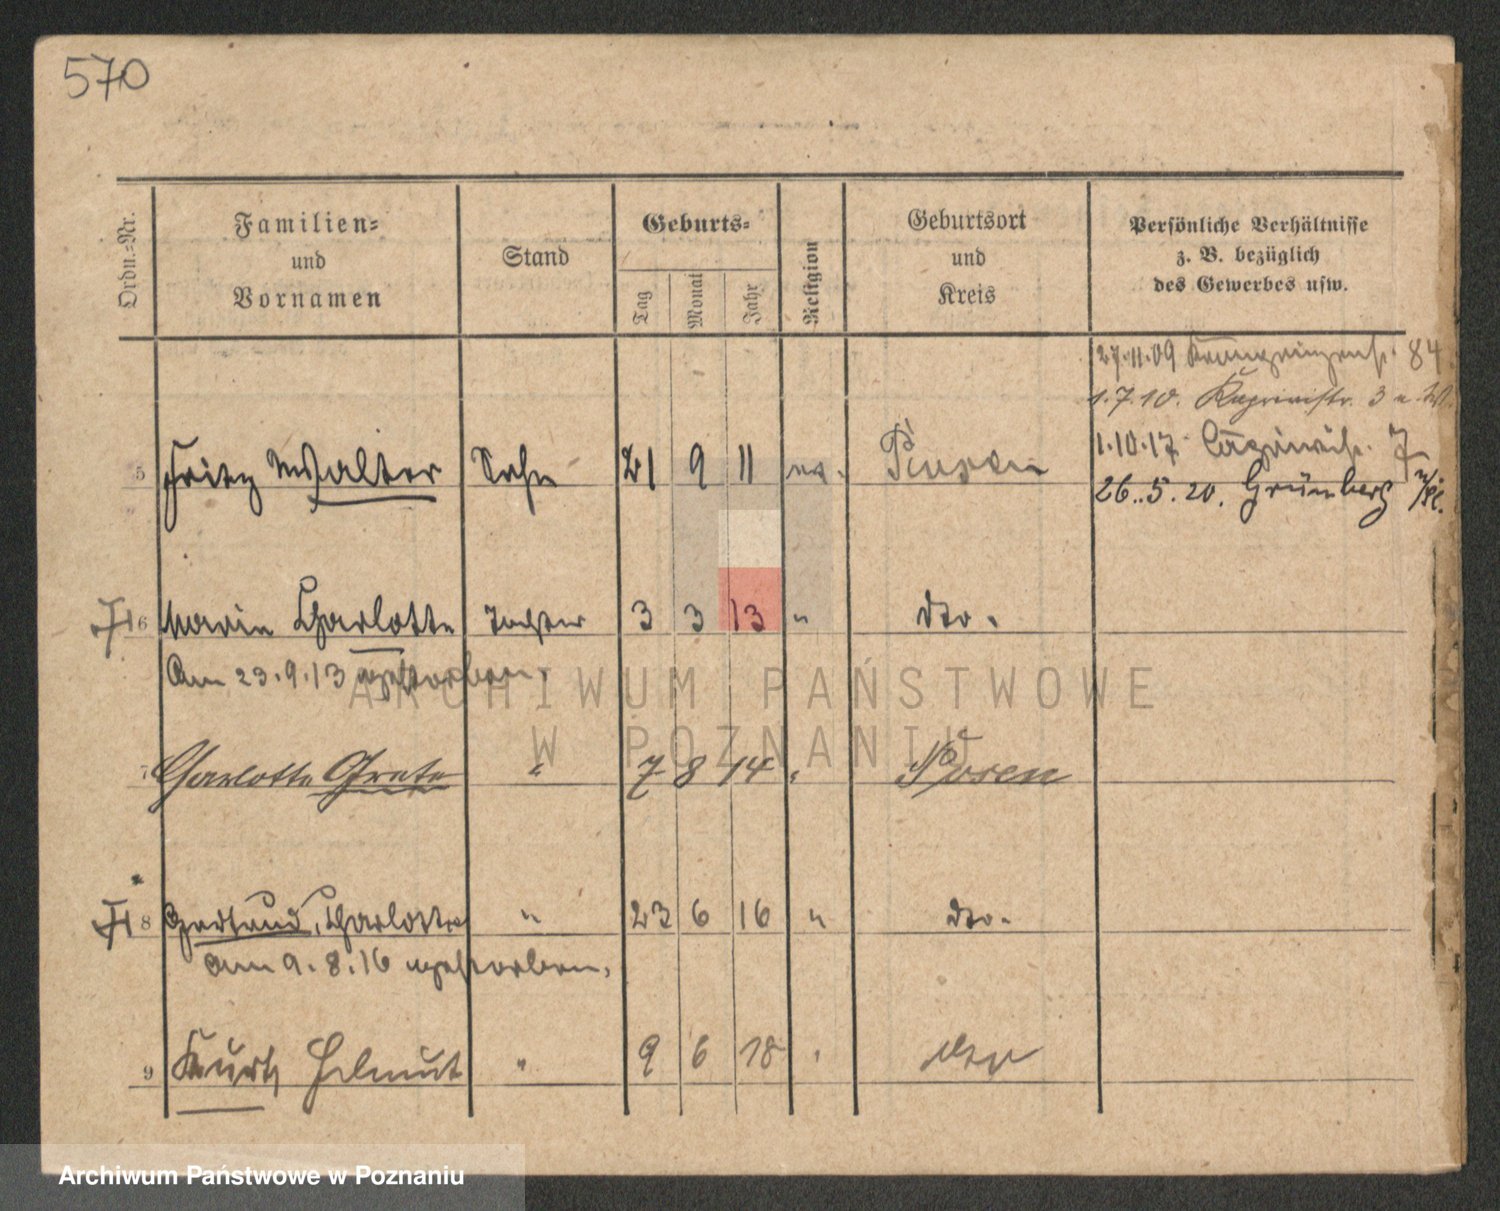 570
Ordn.-Nr.
Familien-
und
Vornamen
Stand
Geburts-
Tag
Monat
Jahr
Religion
Geburtsort
und
Kreis
Persönliche Verhältnisse
z. B. bezüglich
des Gewerbes usw.
27.11.09 84
1.7.10. 3
1.10.17. 7
5 Fritz Walter Sohn 21 9 11 Posen
26.5.20. Grünberg
6 Maria Charlotte Tochter 3 3 13 " dto.
Am 23.9.13 gestorben.
ARCHIWUM PAŃSTWOWE
W POZNANIU
7 Charlotte Grete " 7 8 14 " Posen
8 Gertrud, Charlotte " 23 6 16 " dto.
am 9.8.16 gestorben.
9 Kurt Helmut " 9 6 18 " dto
Archiwum Państwowe w Poznaniu